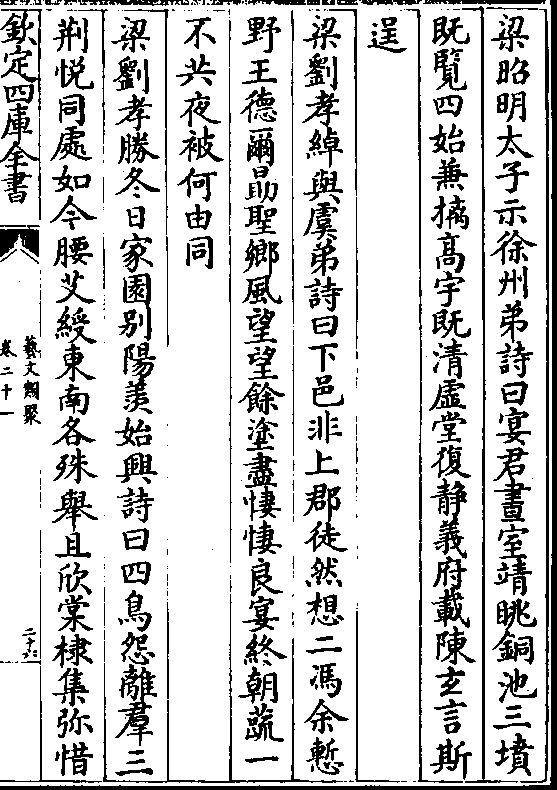 梁昭明太子示徐州弟詩曰宴君畫室靖眺銅池三墳
既覽四始兼摛高宇既清虛堂復靜義府載陳玄言斯
逞
梁劉孝綽與虞弟詩曰下邑非上郡徒然想二馮余慙
野王德爾勗聖鄉風望望餘塗盡悽悽良宴終朝蔬一
不共夜被何由同
梁劉孝勝冬日家園别陽羨始興詩曰四鳥怨離羣三
荆悦同處如今腰艾綬東南各殊舉且欣棠棣集弥惜
欽定四庫全書
藝文類聚
卷二十一
二十六